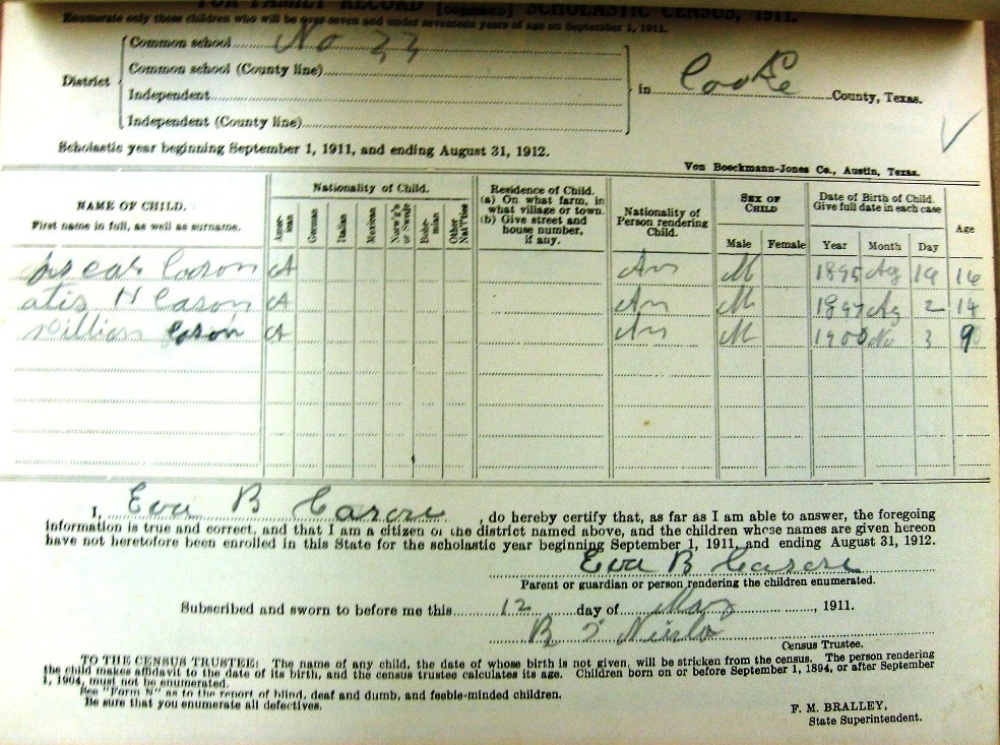 FOR FAMILY RECORD SCHOLASTIC CENSUS, 1911.
Enumerate only those children who will be over seven and under seventeen years of age on September 1, 1911.
District
Common school No 33
Common school (County line)
Independent
Independent (County line)
in Cooke County, Texas.
Scholastic year beginning September 1, 1911, and ending August 31, 1912.
Von Boeckmann-Jones Co., Austin, Texas.
NAME OF CHILD. First name in full, as well as surname.
Nationality of Child.
American German Italian Mexican Norw'g'n or Swede Bohemian Other Nat'ties
Residence of Child. (a) On what farm, in what village or town. (b) Give street and house number, if any.
Nationality of Person rendering Child.
SEX OF CHILD
Male Female
Date of Birth of Child. Give full date in each case
Year Month Day
Age
Cason A Am M 1895 Ag 16
atis N Cason A Am M 1897 Ag 2 14
William Cason A Am M 1900 No 3 9
I, Eva B Cason, do hereby certify that, as far as I am able to answer, the foregoing
information is true and correct, and that I am a citizen of the district named above, and the children whose names are given hereon
have not heretofore been enrolled in this State for the scholastic year beginning September 1, 1911, and ending August 31, 1912.
Eva B Cason
Parent or guardian or person rendering the children enumerated.
Subscribed and sworn to before me this 12 day of May, 1911.
B
Census Trustee.
TO THE CENSUS TRUSTEE: The name of any child, the date of whose birth is not given, will be stricken from the census. The person rendering
the child makes affidavit to the date of its birth, and the census trustee calculates its age. Children born on or before September 1, 1894, or after September
1, 1904, must not be enumerated.
See "Form N" as to the report of blind, deaf and dumb, and feeble-minded children.
Be sure that you enumerate all defectives.
F. M. BRALLEY,
State Superintendent.